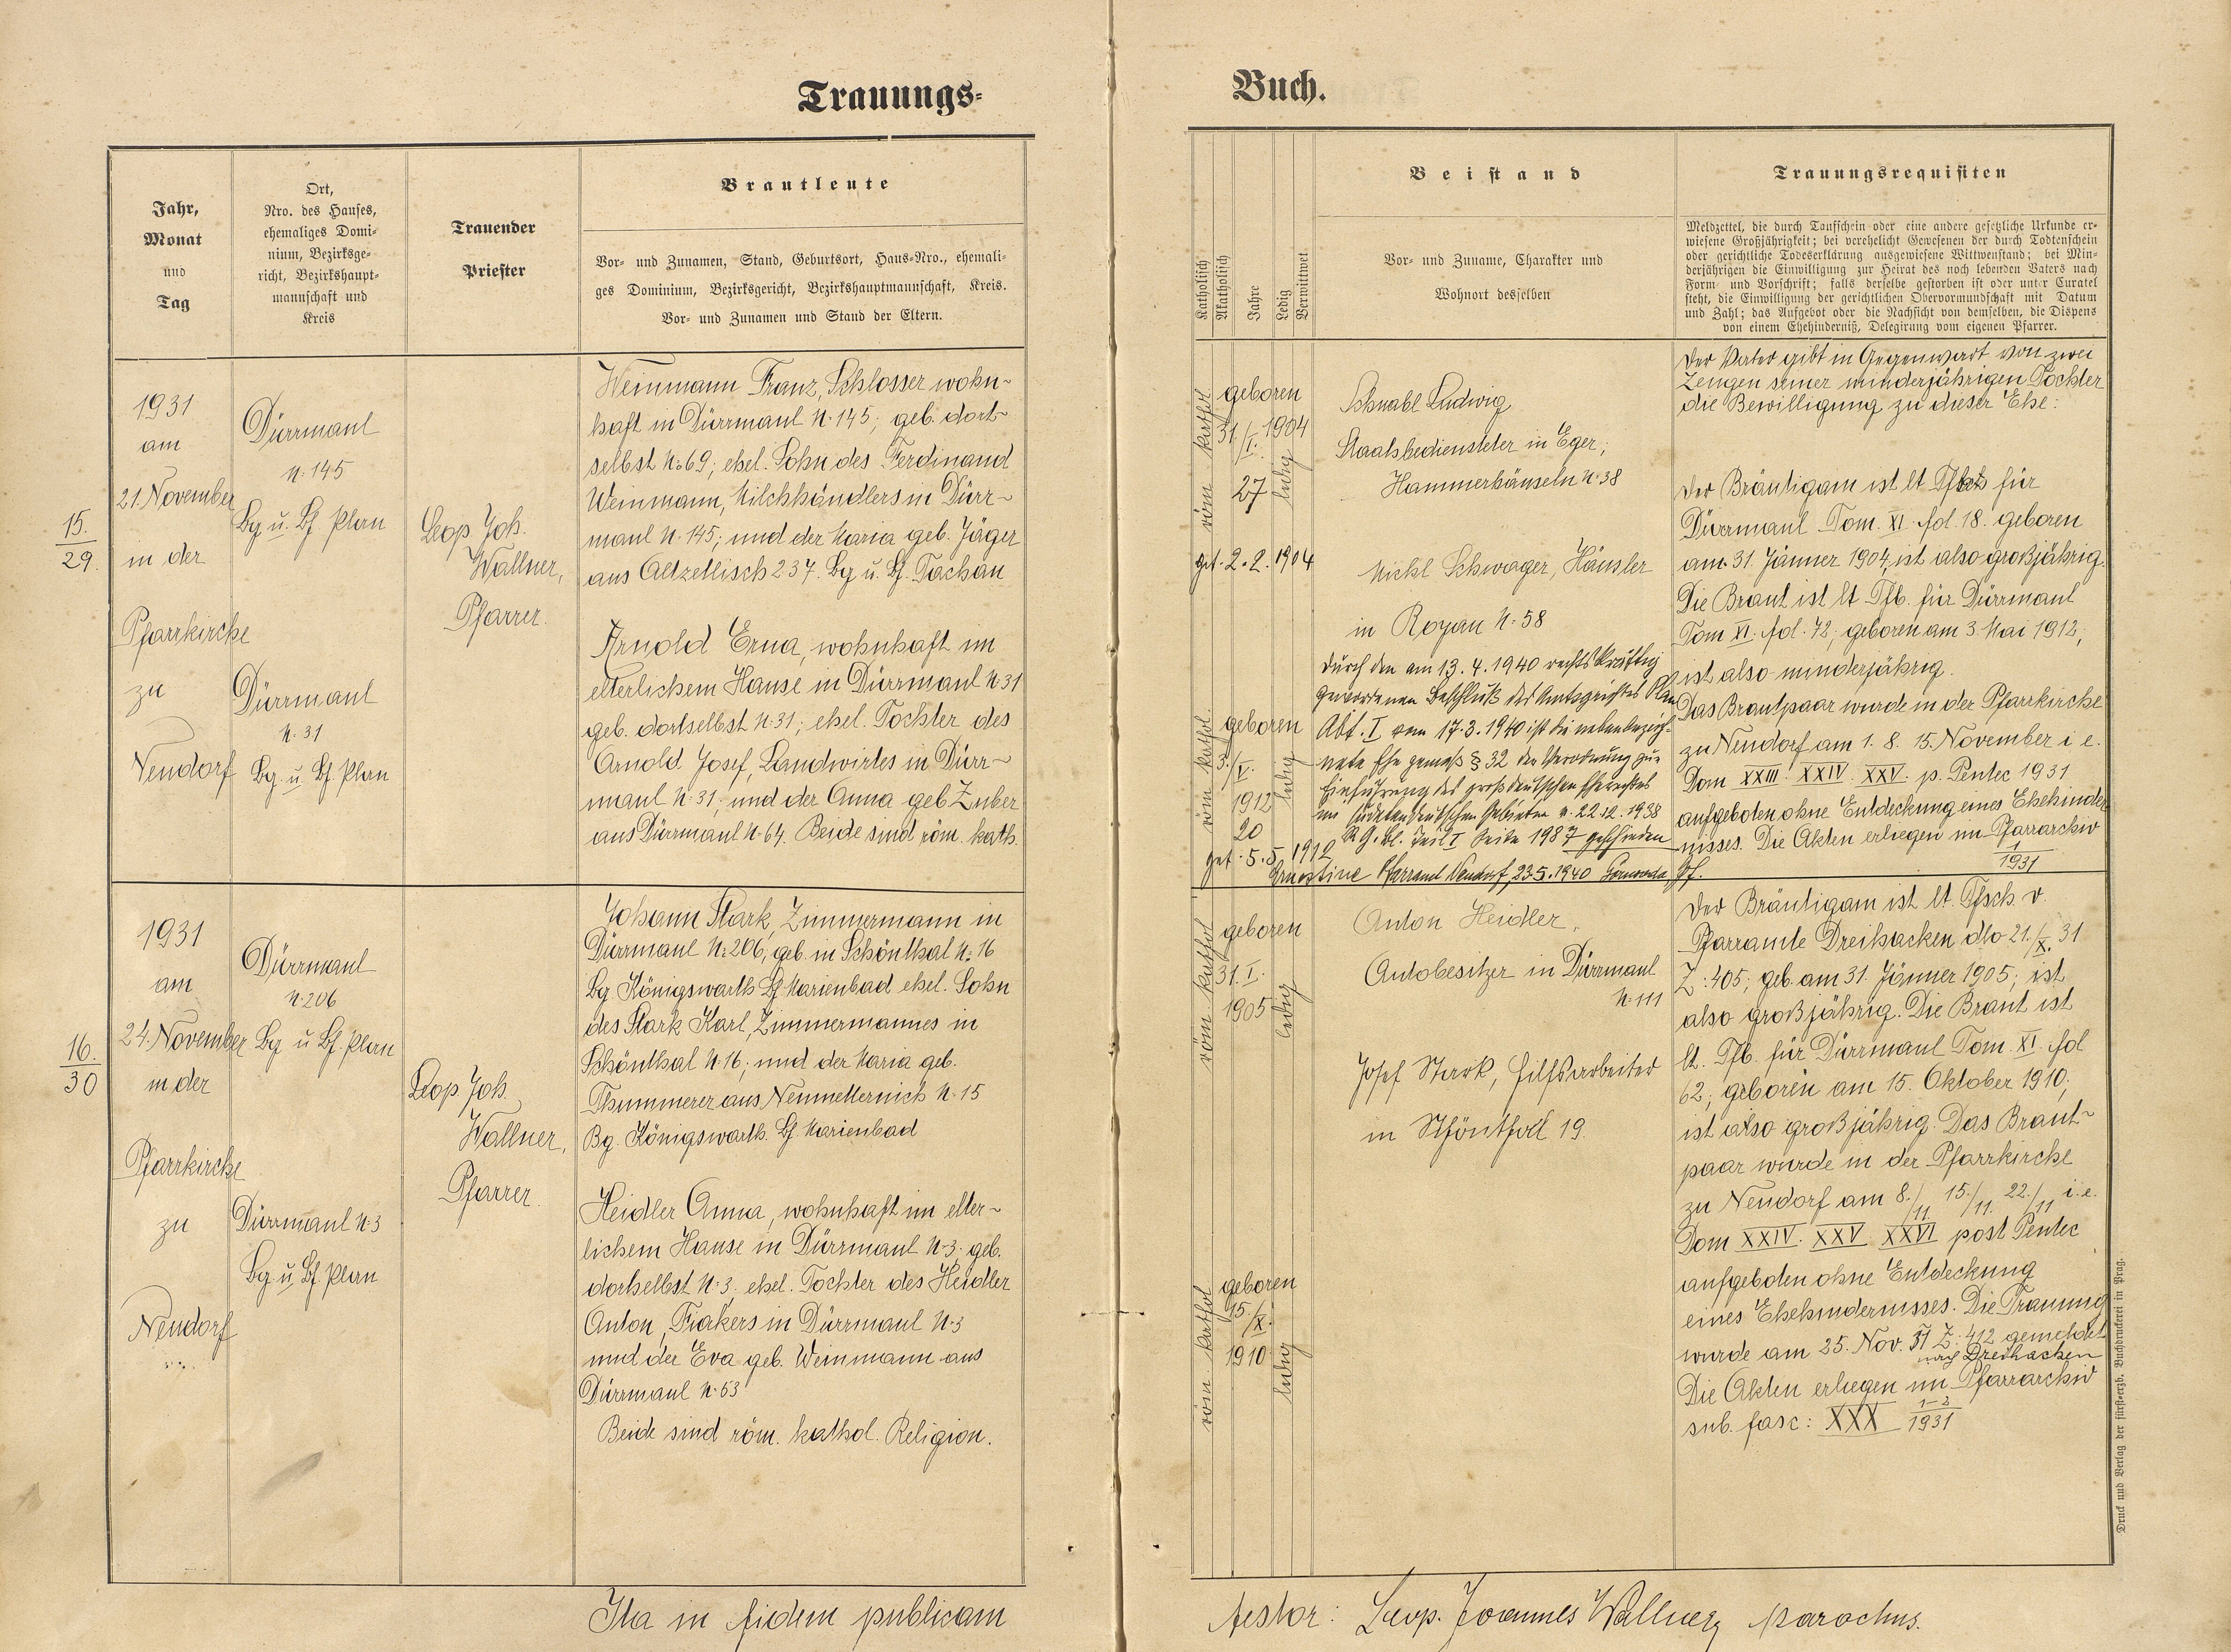 Trauungs-
Buch.
Jahr,
Monat
und
Tag
Ort,
Nro. des Hauses,
ehemaliges Domi-
nium, Bezirksge-
richt, Bezirkshaupt-
mannschaft und
Kreis
Trauender
Priester
Brautleute
Vor- und Zunamen, Stand, Geburtsort, Haus-Nro., ehemali-
ges Dominium, Bezirksgericht, Bezirkshauptmannschaft, Kreis.
Vor- und Zunamen und Stand der Eltern.
Katholisch
Akatholisch
Jahre
Ledig
Verwittwet
Beistand
Vor- und Zuname, Charakter und
Wohnort desselben
Trauungsrequisiten
Meldzettel, die durch Taufschein oder eine andere gesetzliche Urkunde er-
wiesene Großjährigkeit; bei verehelicht Gewesenen der durch Todtenschein
oder gerichtliche Todeserklärung ausgewiesene Wittwenstand; bei Min-
derjährigen die Einwilligung zur Heirat des noch lebenden Vaters nach
Form und Vorschrift; falls derselbe gestorben ist oder unter Curatel
steht, die Einwilligung der gerichtlichen Obervormundschaft mit Datum
und Zahl; das Aufgebot oder die Nachsicht von demselben, die Dispens
von einem Ehehinderniß, Delegirung vom eigenen Pfarrer.
15.
29.
1931
am
21. November
in der
Pfarrkirche
zu
Neudorf
Dürrmaul
N. 145
Bg u. Bf Plan
Dürrmaul
N. 31
Bg. u. Bf. Plan
Leop. Joh.
Wallner,
Pfarrer.
Weinmann Franz, Schlosser wohn-
haft in Dürrmaul N. 145; geb. dort-
selbst N. 69; ehel. Sohn des Ferdinand
Weinmann, Milchhändlers in Dürr-
maul N. 145; und der Maria geb. Jäger
aus Altzetlisch 237. Bg u. Bf. Tachau
Arnold Erna, wohnhaft im
elterlichem Hause in Dürrmaul N. 31
geb. dortselbst N. 31; ehel. Tochter des
Arnold Josef, Landwirtes in Dürr-
maul N. 31; und der Anna geb Zuber
aus Dürrmaul N. 64. Beide sind röm. kath.
röm kathol.
geboren
31./I. 1904
27
ledig
get. 2. 2. 1904
röm kathol.
geboren
3./V.
1912
20
ledig
get. 5. 5. 1912
Ernestine
Schnabl Ludwig
Staatsbediensteter in Eger;
Hammerhäuseln N. 38
Michl Schwager, Häusler
in Royau N. 58
Durch den am 13. 4. 1940 rechtskräftig
gewordenen Beschluß des Amtsgerichtes Plan
Abt. I vom 17. 3. 1940 ist die nebenbezeich-
nete Ehe gemäß § 32 der Verordnung zur
Einführung des großdeutschen Eherechtes
im sudetendeutschen Gebieten v. 22.12.1938
R.G.Bl. Teil I Seite 1987 geschieden
Pfarramt Neudorf, 23.5.1940 Pf.
Der Vater gibt in Gegenwart von zwei
Zeugen seiner minderjährigen Tochter
die Bewilligung zu dieser Ehe:
Der Bräutigam ist lt für
Dürrmaul Tom. XI. fol. 18. geboren
am 31. Jänner 1904, ist also großjährig.
Die Braut ist lt Tfb. für Dürrmaul
Tom XI. fol. 72; geboren am 3. Mai 1912;
ist also minderjährig.
Das Brautpaar wurde in der Pfarrkirche
zu Neudorf am 1. 8. 15. November i e.
Dom XXIII. XXIV. XXV. p. Pentec 1931
aufgeboten ohne Entdeckung eines Ehehinder-
nisses. Die Akten erliegen im Pfarrarchiv
1
1931
16.
30
1931
am
24. November
in der
Pfarrkirche
zu
Neudorf
Dürrmaul
N. 206
Bg u Bf. Plan
Dürrmaul N. 3
Bg. u. Bf. Plan
Leop. Joh.
Wallner,
Pfarrer
Johann Stark, Zimmermann in
Dürrmaul N. 206; geb. in Schönthal N. 16
Bg Königswarth Bf Marienbad ehel. Sohn
des Stark Karl, Zimmermannes in
Schönthal N. 16; und der Maria geb.
Thummerer aus Neumetternich N. 15
Bg. Königswarth. Bf. Marienbad
Heidler Anna, wohnhaft im elter-
lichem Hause in Dürrmaul N. 3. geb.
dortselbst N. 3. ehel. Tochter des Heidler
Anton, Fiakers in Dürrmaul N. 3
und der Eva geb. Weinmann aus
Dürrmaul N. 53
Beide sind röm. kathol. Religion.
röm kathol
geboren
31. I.
1905
ledig
röm kathol
geboren
15./X.
1910
ledig
Anton Heidler,
Autobesitzer in Dürrmaul
N. 111
Josef Stark, Hilfsarbeiter
in Schönthal 19.
Der Bräutigam ist lt. Tfsch. v.
Pfarramte Dreihacken dto 21./X. 31
Z: 405; geb. am 31. Jänner 1905; ist
also großjährig. Die Braut ist
lt. Tfb. für Dürrmaul Tom. XI. fol
62; geboren am 15. Oktober 1910;
ist also großjährig. Das Braut-
paar wurde in der Pfarrkirche
zu Neudorf am 8./11. 15./11. 22./11 i. e.
Dom XXIV. XXV XXVI post Pentec
aufgeboten ohne Entdeckung
eines Ehehindernisses. Die Trauung
wurde am 25. Nov. 31 Z: 412 gemeldet
nach Dreihacken
Die Akten erliegen im Pfarrarchiv
sub. fasc: XXX 1-2
1931
Druck und Verlag der fürst-erzb. Buchdruckerei in Prag.
Ita in fidem publicam
testor: Leop. Joannes Wallner, parochus.